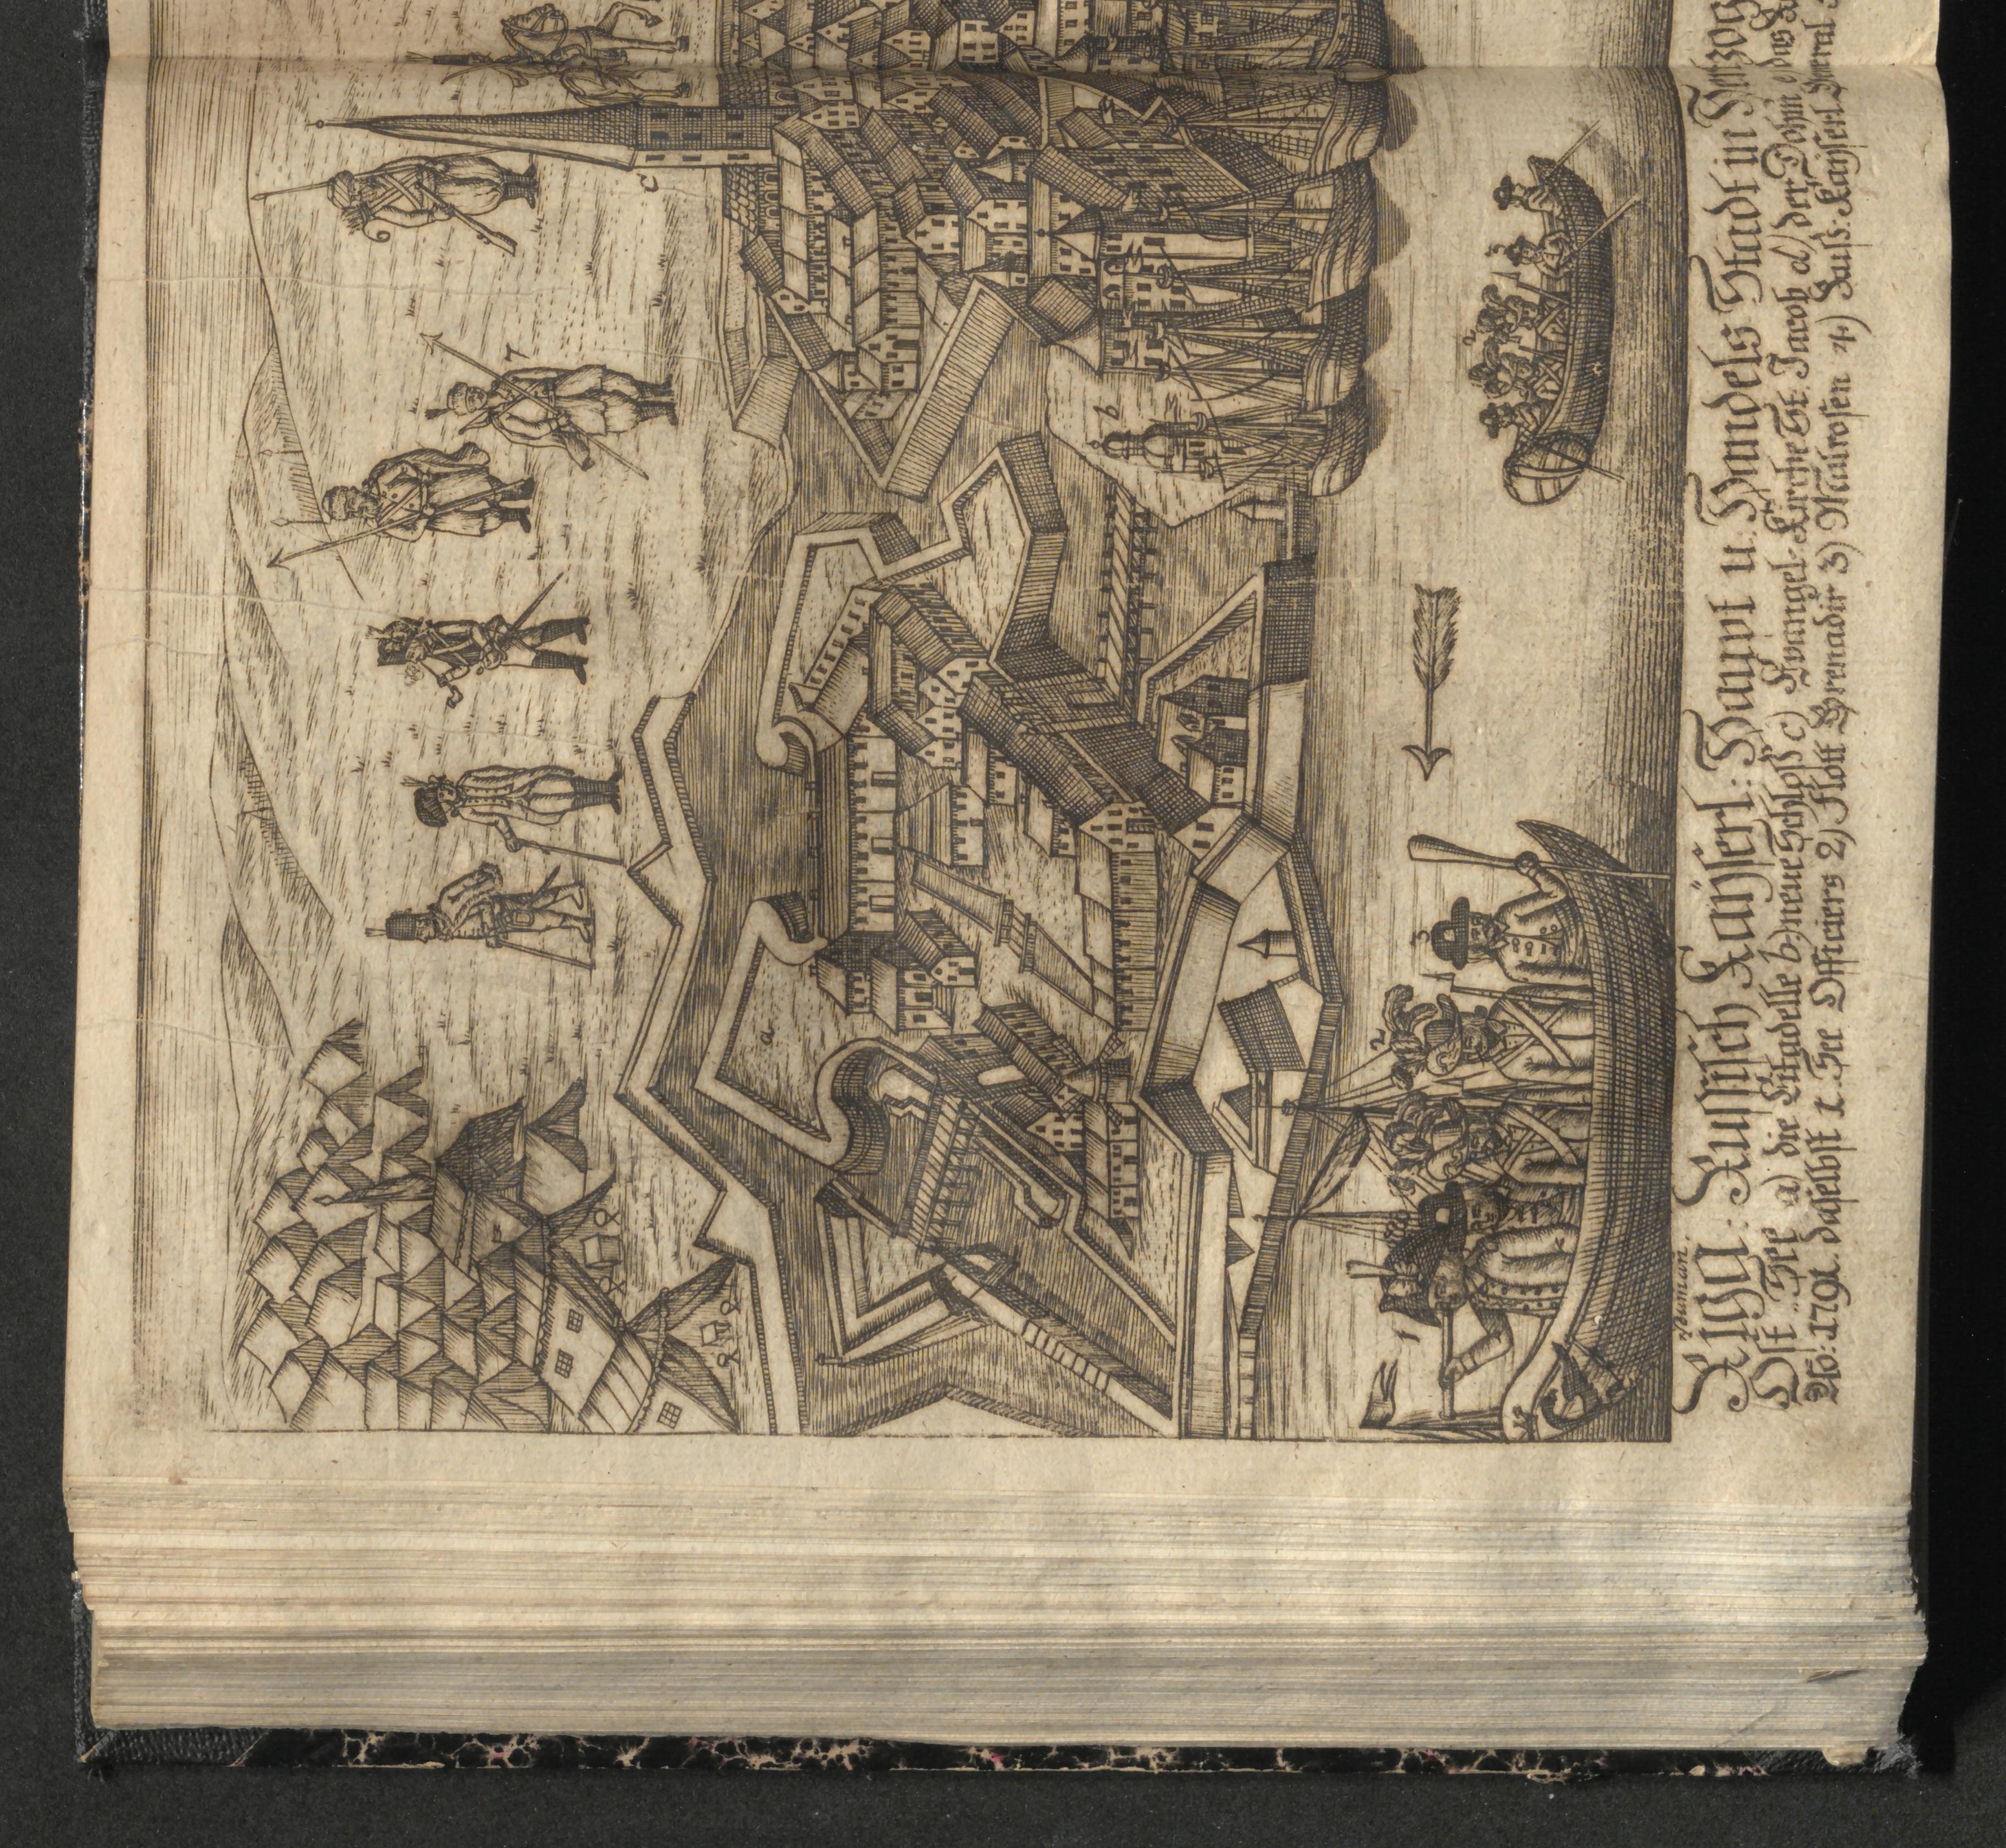 Riga: Russisch Kaÿserl: Haupt u. Handels Stadt in Herzog
Ost-See a) die Citadelle b) neue Schloß c) Evangel-Kirche St. Jacob d) der Dohm e) das
Ao: 1791 daselbst 1. See Officiers 2) Flott Grenadir 3) Matrosen 4) Russ: Kaÿserl General
a
b
c
1
2
3
2
3
6
7